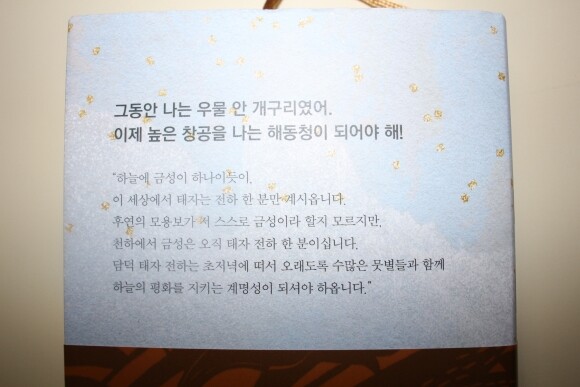 그동안 나는 우물 안 개구리였어.
이제 높은 창공을 나는 해동청이 되어야 해!
“하늘에 금성이 하나이듯이,
이 세상에서 태자는 전하 한 분만 계시옵니다.
후연의 모용보가 저 스스로 금성이라 할지 모르지만,
천하에서 금성은 오직 태자 전하 한 분이십니다.
담덕 태자 전하는 초저녁에 떠서 오래도록 수많은 뭇별들과 함께
하늘의 평화를 지키는 계명성이 되셔야 하옵니다.”